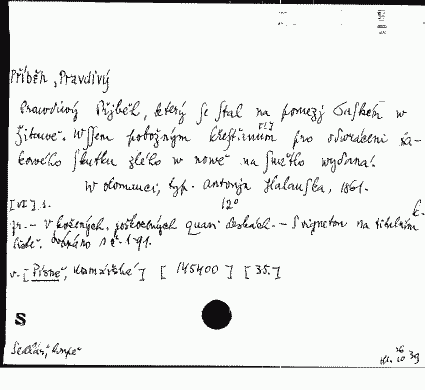 Příběh, Pravdivý
Prawdiwý Přjběh, který se stal na pomezj Českém w
Žitawě. Wssem pobožným křestianum pro odwrácení ta-
kowého skutku zlého w nowě na swětlo wydaná.
W olomauci, typ. Antonja Halausska, 1861.
[VI] l. 12°
pr. – V kožených, quasi deskách. – S vignetou na titulním
listě. 1791.
v. [Písně, kramářské] [145400] [35.]
S
Sedlák, koupě
39